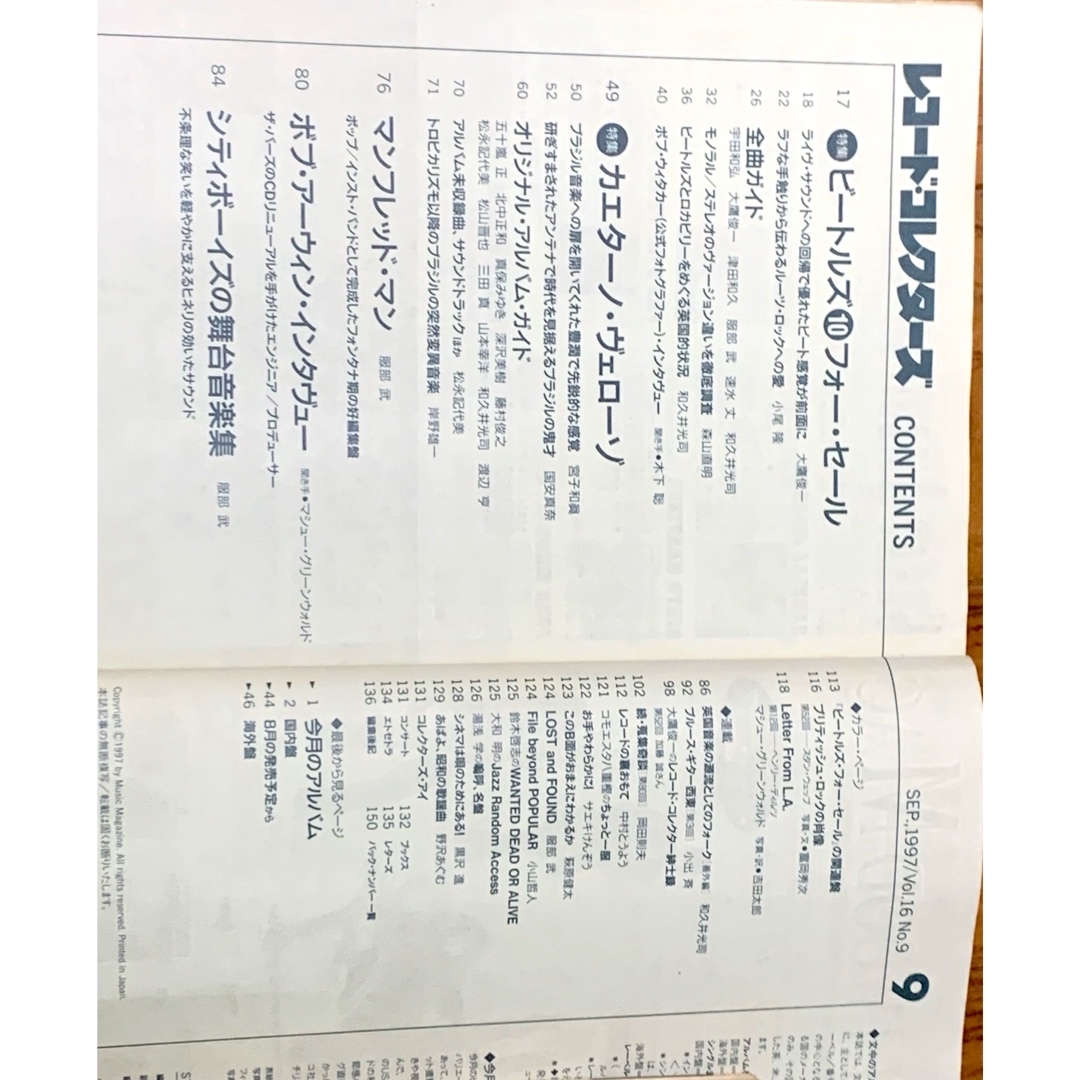 レコード・コレクターズ CONTENTS
SEP.,1997/Vol.16 No.9 9
17 特集 ビートルズ⑩フォー・セール
18 ライヴ・サウンドへの回帰で優れたビート感覚が前面に 大鷹俊一
22 ラフな手触りから伝わるルーツ・ロックへの愛 小尾 隆
26 全曲ガイド
宇田和弘 大鷹俊一 津田和久 服部 武 速水 丈 和久井光司
32 モノラル/ステレオのヴァージョン違いを徹底調査 森山直明
36 ビートルズとロカビリーをめぐる英国的状況 和久井光司
40 ボブ・ウィタカー(公式フォトグラファー)・インタヴュー 聞き手●木下 聡
49 特集 カエターノ・ヴェローゾ
50 ブラジル音楽への扉を開いてくれた豊潤で先鋭的な感覚 宮子和眞
52 研ぎすまされたアンテナで時代を見据えるブラジルの鬼才 国安真奈
60 オリジナル・アルバム・ガイド
五十嵐 正 北中正和 真保みゆき 深沢美樹 藤村俊之
松永記代美 松山晋也 三田 真 山本幸洋 和久井光司 渡辺 亨
70 アルバム未収録曲、サウンドトラックほか 松永記代美
71 トロピカリズモ以降のブラジルの突然変異音楽 岸野雄一
76 マンフレッド・マン 服部 武
ポップ/インスト・バンドとして完成したフォンタナ期の好編集盤
80 ボブ・アーウィン・インタヴュー 聞き手●マシュー・グリーンウォルド
ザ・バーズのCDリニューアルを手がけたエンジニア/プロデューサー
84 シティボーイズの舞台音楽集 服部 武
不条理な笑いを軽やかに支えるヒネリの効いたサウンド
◆カラー・ページ
113 『ビートルズ・フォー・セール』の関連盤
116 ブリティッシュ・ロックの肖像
第52回 スタン・ウェッブ 写真・文●富岡秀次
118 Letter From L.A.
第12回 ヘンリー・ディルツ
マシュー・グリーンウォルド 写真・訳●吉田太郎
◆連載
86 英国音楽の源流としてのフォーク[番外編] 和久井光司
92 ブルース・ギター西東[第3回] 小出 斉
98 大鷹俊一のレコード・コレクター紳士録
第52回 加藤 誠さん
102 続・蒐集奇談[第80回] 岡田則夫
112 レコードの裏おもて 中村とうよう
121 コモエスタ八重樫のちょっと一服
122 お手やわらかに! サエキけんぞう
123 このB面がおまえにわかるか 萩原健太
124 LOST and FOUND 服部 武
124 File beyond POPULAR 小山哲人
125 鈴木啓志のWANTED DEAD OR ALIVE
125 大和 明のJazz Random Access
126 湯浅 学の嗚呼、名盤
128 シネマは唄のためにある! 黒沢 進
129 あばよ、昭和の歌謡曲 野沢あぐむ
131 コレクターズ・アイ
131 コンサート 132 ブックス
134 エトセトラ 135 レターズ
136 編集後記 150 バックナンバー一覧
◆最後から見るページ
►1 今月のアルバム
►2 国内盤
►44 8月の発売予定から
►46 海外盤
Copyright ©1997 by Music Magazine. All rights reserved. Printed in Japan.
本誌記事の無断複写/転載は固くお断りいたします。